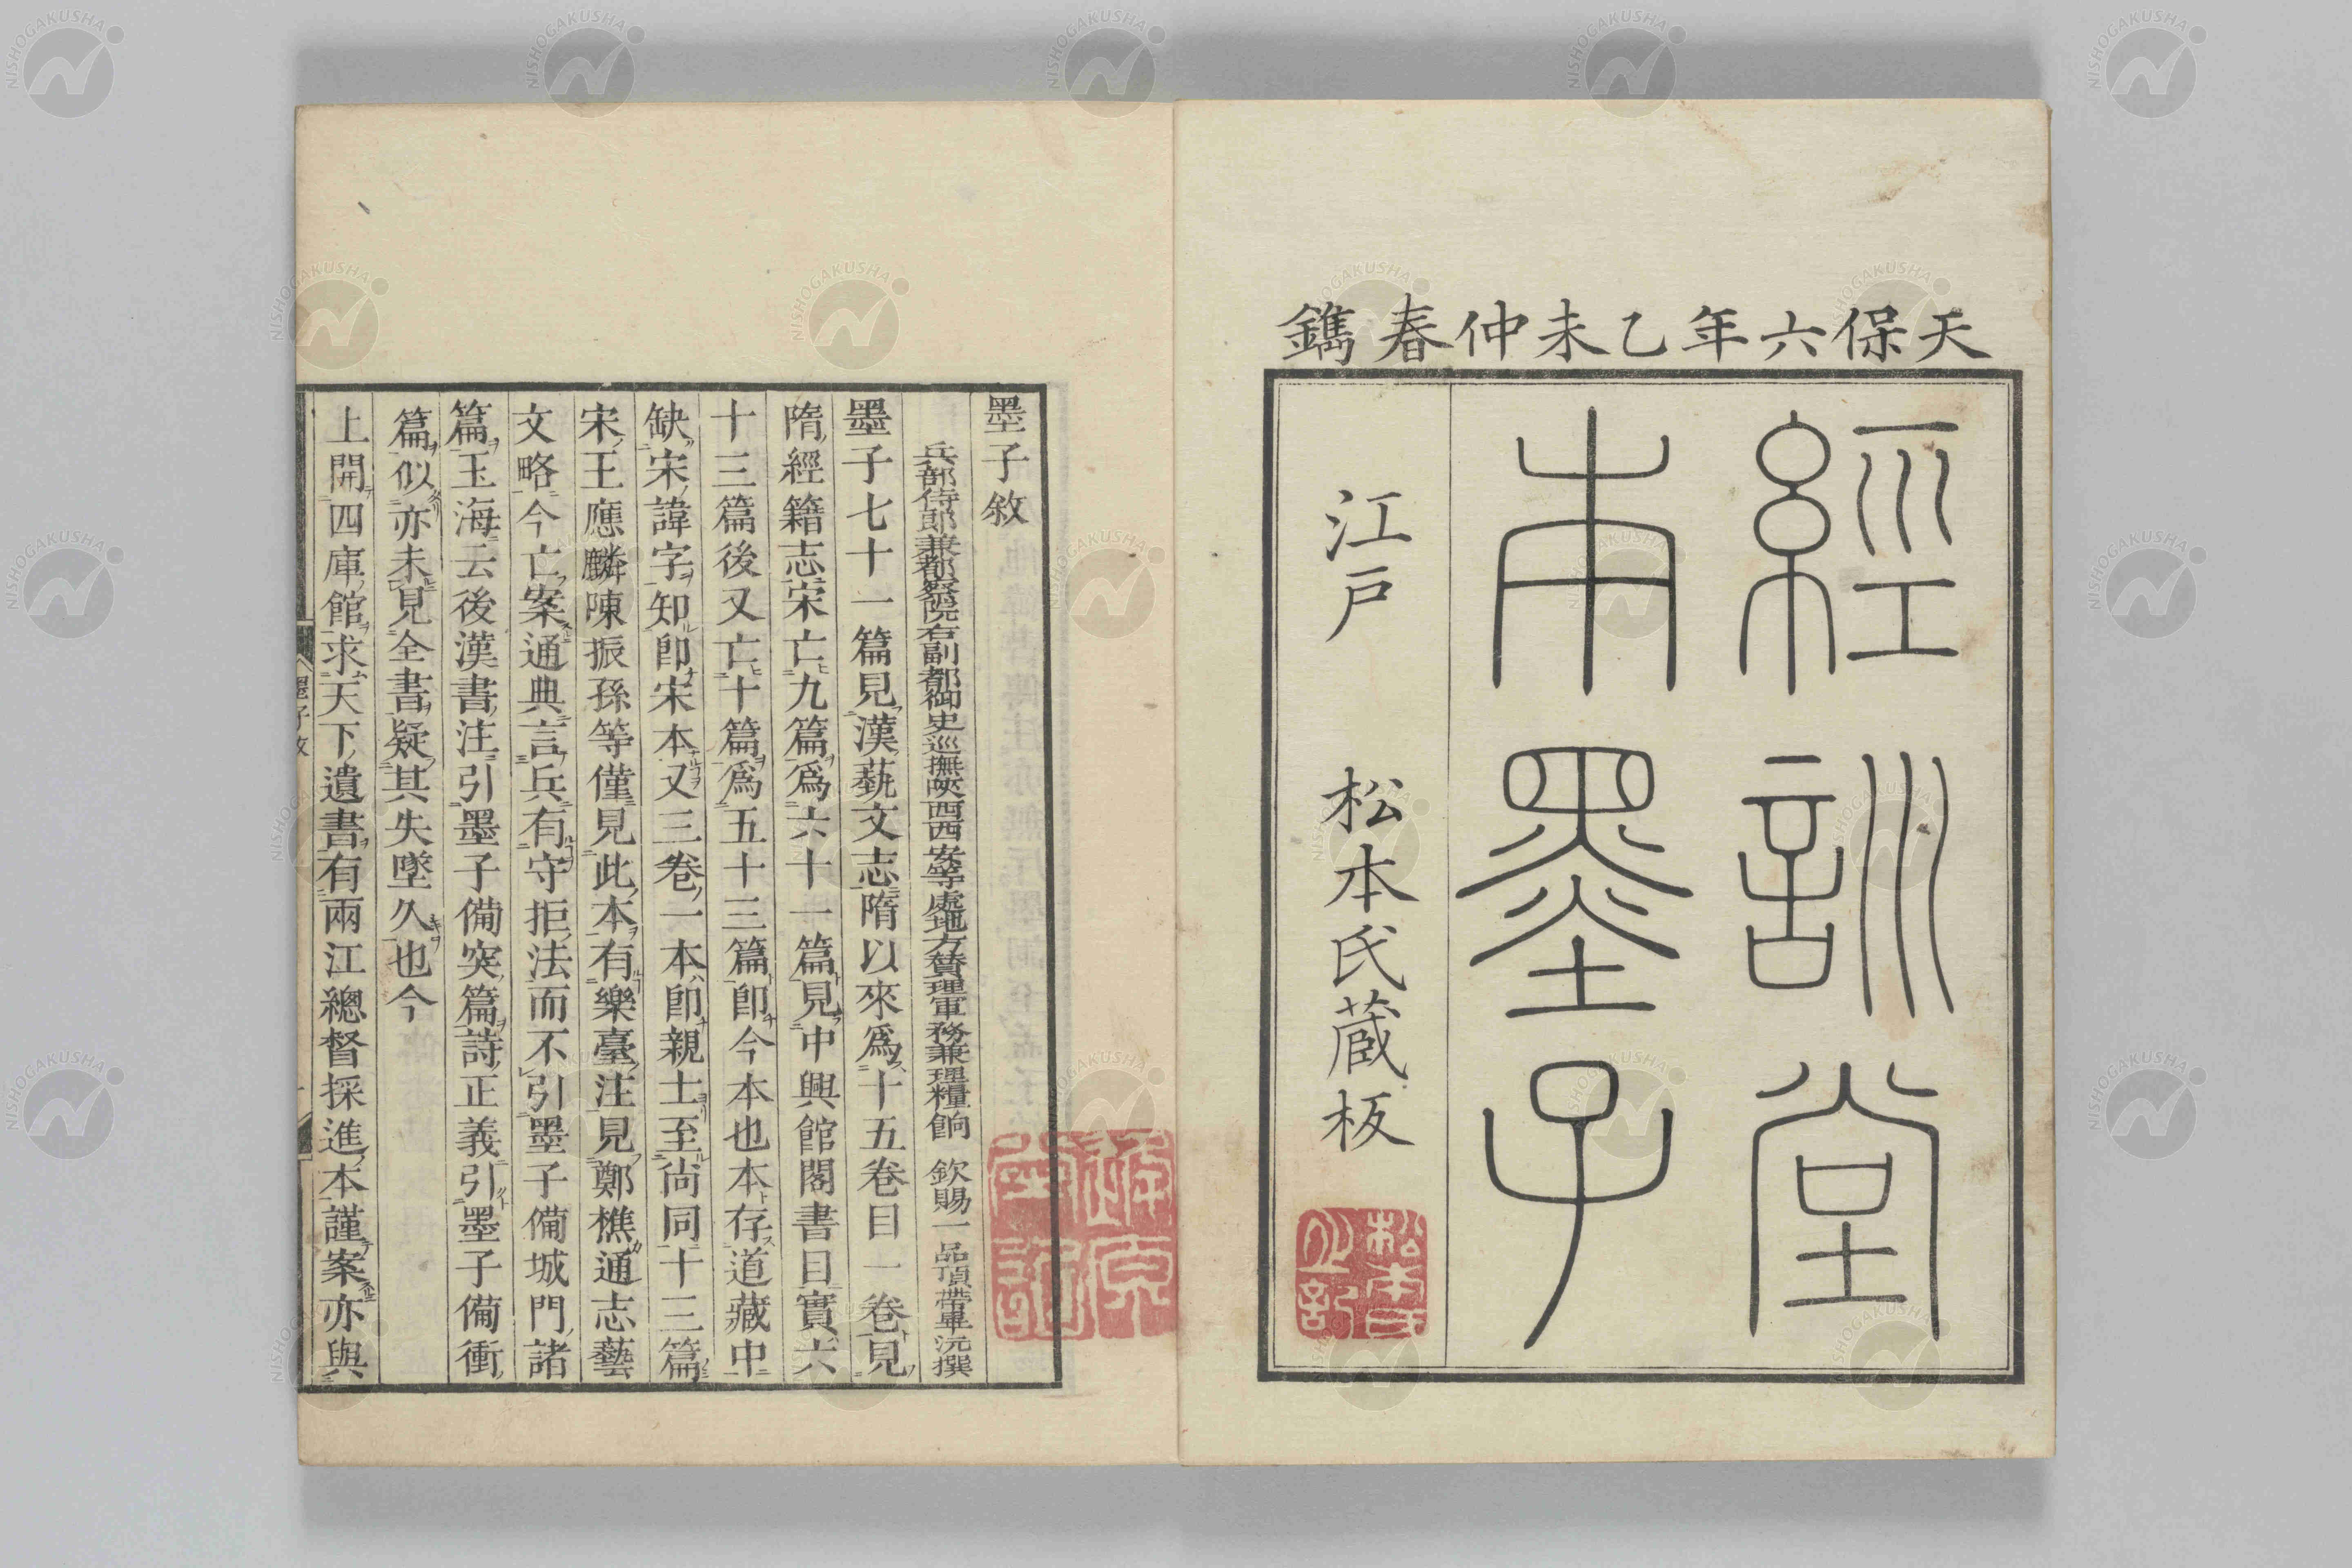 天保六年乙未仲春鐫
經訓堂
本墨子
江戸 松本氏蔵板
墨子敘
兵部侍郎兼都察院右副都御史巡撫陝西西安等處地方贊理軍務兼理糧餉 欽賜一品頂帶畢沅撰
墨子七十一篇見漢藝文志隋以來爲十五卷目一卷見
隋經籍志宋亡九篇爲六十一篇見中興館閣書目實六
十三篇後又亡十篇爲五十三篇卽今本也本存道藏中
缺宋諱字知卽宋本又三卷一本卽親士至尙同十三篇
宋王應麟陳振孫等僅見此本有樂臺注見鄭樵通志藝
文略今亡案通典言兵有守拒法而不引墨子備城門諸
篇玉海云後漢書注引墨子備突篇詩正義引墨子備衝
篇似亦未見全書疑其失墜久也今
上開四庫館求天下遺書有兩江總督採進本謹案亦與
墨子敘
NISHOGAKUSHA